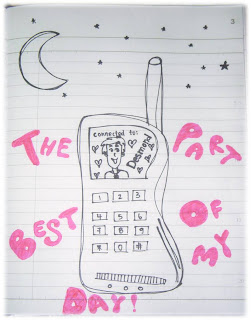 3
THE PART
BEST OF MY
DAY!
connected to:
Desmond
1 2 3
4 5 6
7 8 9
* 0 #